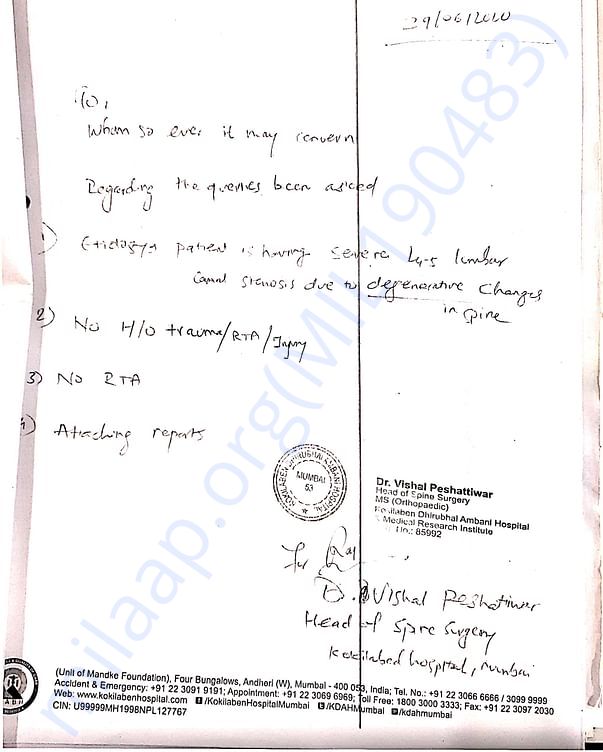 29/06/2020
To,
Whom so ever it may concern
Regarding the queries been asked
1) Etiology patient is having severe L4-5 lumbar
canal stenosis due to degenerative changes
in spine
2) No H/O trauma/RTA/Injury
3) No RTA
4) Attaching reports
KOKILABEN DHIRUBHAI AMBANI HOSPITAL
MUMBAI
53
Dr. Vishal Peshattiwar
Head of Spine Surgery
MS (Orthopaedic)
Kokilaben Dhirubhai Ambani Hospital
& Medical Research Institute
No.: 85992
For
Dr. Vishal Peshattiwar
Head of Spine Surgery
Kokilaben hospital, Mumbai
(Unit of Mandke Foundation), Four Bungalows, Andheri (W), Mumbai - 400 053, India; Tel. No.: +91 22 3066 6666 / 3099 9999
Accident & Emergency: +91 22 3091 9191; Appointment: +91 22 3069 6969; Toll Free: 1800 3000 3333; Fax: +91 22 3097 2030
Web: www.kokilabenhospital.com /KokilabenHospitalMumbai /KDAHMumbai /kdahmumbai
CIN: U99999MH1998NPL127767
milaap.org(MIL190483)